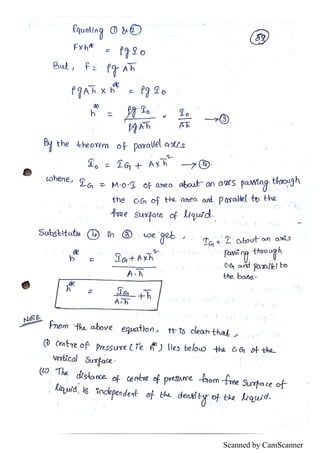 Equating ① & ②
(53)
F x h* = ρg I₀
But, F = ρg Ah̄
ρgAh̄ x h* = ρg I₀
h* = ρg I₀ / ρg Ah̄ = I₀ / Ah̄ → ③
By the theorem of parallel axis
I₀ = IG + A x h̄² → ④
where, IG = M.O.I of area about an axis passing through
the C.G of the area and parallel to the
free surface of liquid.
Substitute ④ in ③ . we get ,
h* = IG + A x h̄² / A.h̄
IG = I about an axis
passing through
CG and parallel to
the base.
h* = IG / A.h̄ + h̄
NOTE
From the above equation, it is clear that ,
(i) Centre of pressure (ie h*) lies below the CG of the
vertical surface.
(ii) The distance of centre of pressure from free surface of
liquid is independent of the density of the liquid.
Scanned by CamScanner